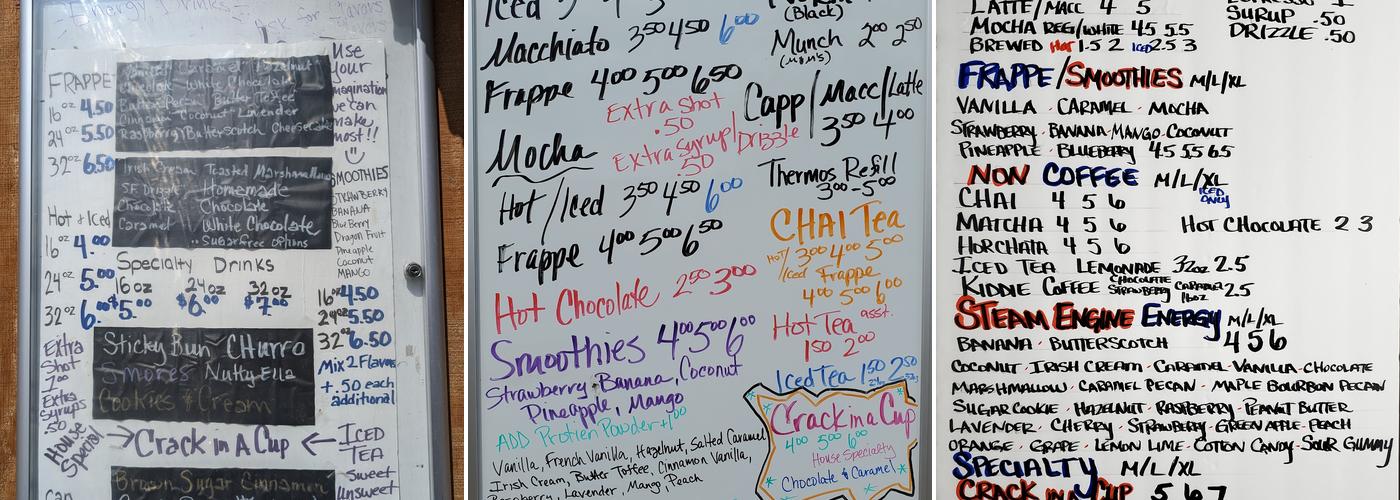 Energy Drinks
Ask for flavors
FRAPPE
16oz 4.50
24oz 5.50
32oz 6.50
Caramel Hazelnut
Chocolate White Chocolate
Butter Pecan Butter Toffee
Cinnamon Coconut Lavender
Raspberry Butterscotch Cheesecake
Use
your
imagination
we can
make
most!!
Irish Cream Toasted Marshmallow
S.F. Drizzle Homemade
Chocolate Chocolate
Caramel White Chocolate
Sugar free options
SMOOTHIES
STRAWBERRY
BANANA
Blue Berry
Dragon Fruit
Pineapple
Coconut
MANGO
Hot + Iced
16oz 4.00
24oz 5.00
32oz 6.00
Specialty Drinks
16oz 24oz 32oz
$5.00 $6.00 $7.00
16oz 4.50
24oz 5.50
32oz 6.50
Mix 2 Flavors
+.50 each
additional
Sticky Bun Churro
Smores Nutty Ella
Cookies & Cream
Extra
Shot
1.00
Extra
Syrups
.50
House
Special
→ Crack in A Cup ←
ICED
TEA
Sweet
Unsweet
Brown Sugar Cinnamon
can
Iced
Macchiato 3.50 4.50 6.00
Frappe 4.00 5.00 6.50
Extra Shot
.50
Extra Syrup/Drizzle
.50
Mocha
Hot/Iced 3.50 4.50 6.00
Frappe 4.00 5.00 6.50
Hot Chocolate 2.50 3.00
Smoothies 4.00 5.00 6.00
Strawberry, Banana, Coconut
Pineapple, Mango
ADD Protien Powder +1.00
Vanilla, French Vanilla, Hazelnut, Salted Caramel
Irish Cream, Butter Toffee, Cinnamon Vanilla,
Raspberry, Lavender, Mango, Peach
(Black)
Munch 2.00 2.50
Capp/Macc/Latte
3.50 4.00
Thermos Refill
3.00-5.00
CHAI Tea
Hot/Iced 3.00 4.00 5.00
Frappe
4.00 5.00 6.00
Hot Tea asst.
1.50 2.00
Iced Tea 1.50 2.50
Crack in a Cup
4.00 5.00 6.00
House Specialty
Chocolate & Caramel
LATTE/MACC 4 5
MOCHA REG/WHITE 4.5 5.5
BREWED Hot 1.5 2 ICED 2.5 3
ESPRESSO 1
SYRUP .50
DRIZZLE .50
FRAPPE/SMOOTHIES M/L/XL
VANILLA · CARAMEL · MOCHA
STRAWBERRY · BANANA · MANGO · COCONUT
PINEAPPLE · BLUEBERRY 4.5 5.5 6.5
NON COFFEE M/L/XL
ICED ONLY
CHAI 4 5 6
MATCHA 4 5 6 HOT CHOCOLATE 2 3
HORCHATA 4 5 6
ICED TEA LEMONADE 32oz 2.5
KIDDIE COFFEE CHOCOLATE STRAWBERRY CARAMEL 16oz 2.5
STEAM ENGINE ENERGY M/L/XL
BANANA · BUTTERSCOTCH 4 5 6
COCONUT · IRISH CREAM · CARAMEL · VANILLA · CHOCOLATE
MARSHMALLOW · CARAMEL PECAN · MAPLE BOURBON PECAN
SUGAR COOKIE · HAZELNUT · RASPBERRY · PEANUT BUTTER
LAVENDER · CHERRY · STRAWBERRY · GREEN APPLE · PEACH
ORANGE · GRAPE · LEMON LIME · COTTON CANDY · SOUR GUMMY
SPECIALTY M/L/XL
CRACK IN A CUP 5 6 7